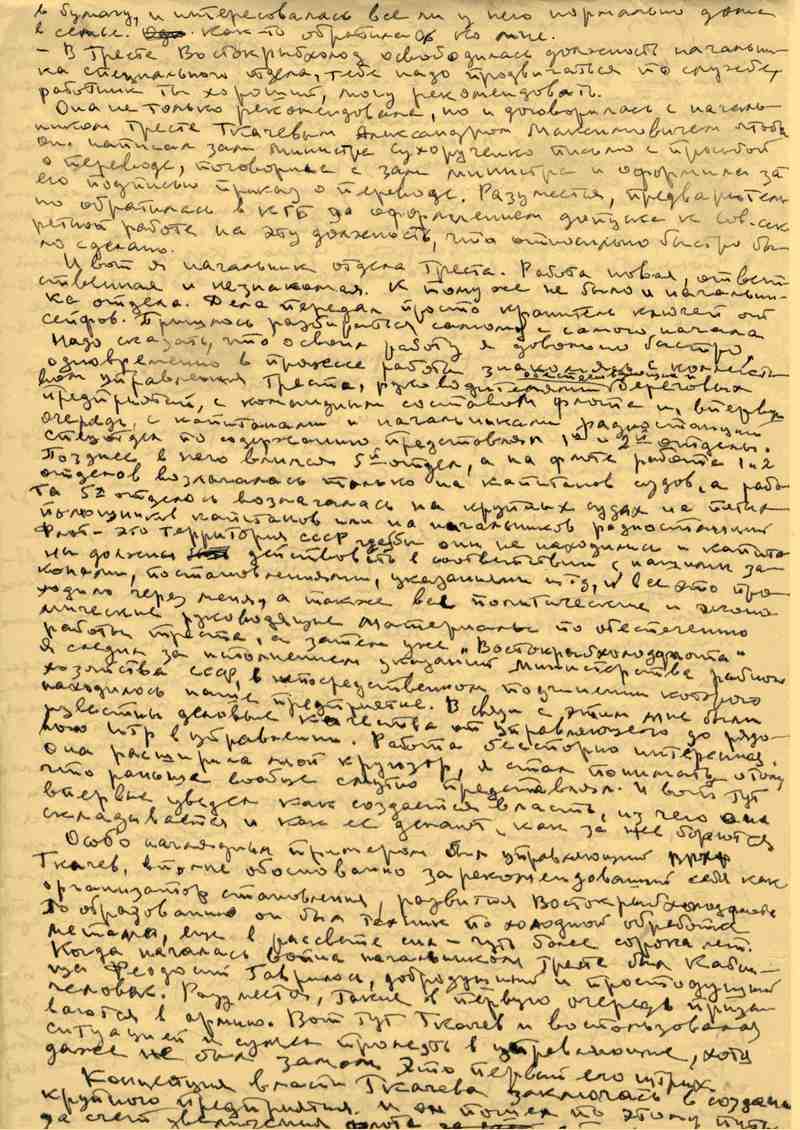 в бумагу, и интересовалась все ли у него нормально дома
в семье. как-то обратилась ко мне.
– В Тресте Востокрыбхолод освободилась должность начальни-
ка специального отдела, тебе надо продвигаться по службе,
работник ты хороший, могу рекомендовать.
Она не только рекомендовала, но и договорилась с началь-
ником Треста Ткачевым Александром Максимовичем чтобы
он написал зам министра Сухорученко письмо с просьбой
о переводе, поговорила с зам министра и оформила за
его подписью приказ о переводе. Разумеется, предваритель-
но обратилась в КГБ за оформлением допуска к сов.сек
ретной работе на эту должность, что относительно быстро бы-
ло сделано.
И вот я начальник отдела Треста. Работа новая, ответ
ственная и незнакомая. К тому же не было и начальни-
ка отдела. Дела передал просто хранитель ключей от
сейфов. Пришлось разбираться самому с самого начала
Надо сказать, что освоил работу я довольно быстро,
одновременно в процессе работы знакомился с коллекти-
вом управления Треста, руководителями береговых
предприятий, с командным составом флота и, в первую
очередь, с капитанами и начальниками радиостанций
Спецотдел по содержанию представлял 1й и 2й отделы.
Позднее в него влился 5й отдел, а на флоте работа 1 и 2
отделов возлагалась только на капитанов судов, а рабо
та 5го отдела возлагалась на крупных судах на
помощников капитанов или на начальников радиостанций
Флот – это территория СССР где бы они не находились и капита
ны должны действовать в соответствии с нашими за-
конами, постановлениями, указаниями и тд, и все это про-
ходило через меня, а также все политические и эконо
мические руководящие материалы по обеспечению
работы треста, а затем уже „Востокрыбхолодфлота"
Я следил за исполнением указаний Министерства рыбного
хозяйства СССР, в непосредственном подчинении которого
находилось наше предприятие. В связи с этим мне были
известны деловые качества от управляющего до рядо-
вого ИТР в управлении. Работа бесспорно интересная.
Она расширила мой кругозор, я стал понимать о том,
что раньше вообще смутно представлял. И вот тут
впервые увидел как создается власть, из чего она
складывается и как ее делают, как за нее борются
Особо наглядным примером был управляющий
Ткачев, вполне обоснованно зарекомендовавший себя как
организатор становления, развития Востокрыбхолодфлота
По образованию он был техник по холодной обработке
металла, еще в расцвете сил – чуть более сорока лет.
Когда началась война начальником Треста был
Феодосий Гаврилович, добродушный и простодушный
человек. Разумеется, такие в первую очередь призы
ваются в армию. Вот тут Ткачев и воспользовался
ситуацией и сумел пролезть в управляющие, хотя
даже не был замом Это первый его штрих.
Концепция власти Ткачева заключалась в создании
крупного предприятия. И он пошел по этому пути
за счет увеличения флота